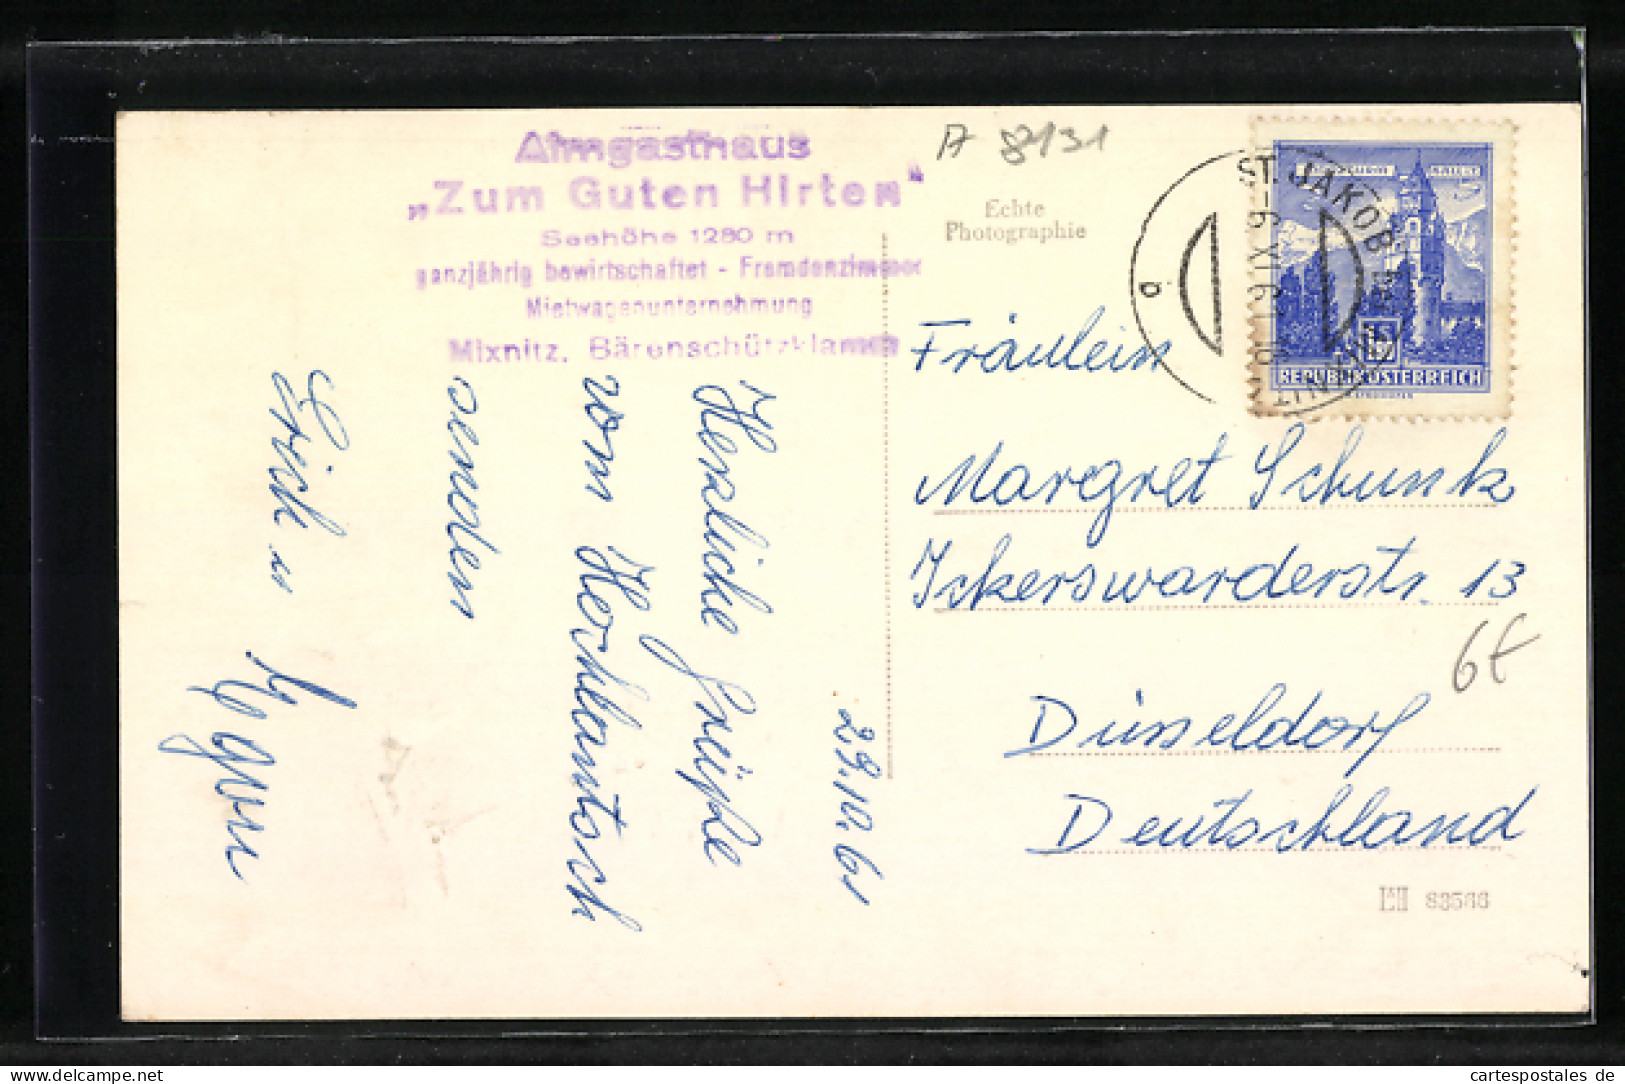 Almgasthaus
„Zum Guten Hirten“
Seehöhe 1280 m
ganzjährig bewirtschaftet - Fremdenzimmer
Mietwagenunternehmung
Mixnitz, Bärenschützklamm
A 8131
Echte
Photographie
ST. JAKOB
-6.XI.61
b
REPUBLIK ÖSTERREICH
29.10.61
Herzliche Grüße
vom
senden
Erich u
Fräulein
Margret Schunk
Ickerswarderstr. 13
6€
Düsseldorf
Deutschland
83566
cartespostales de